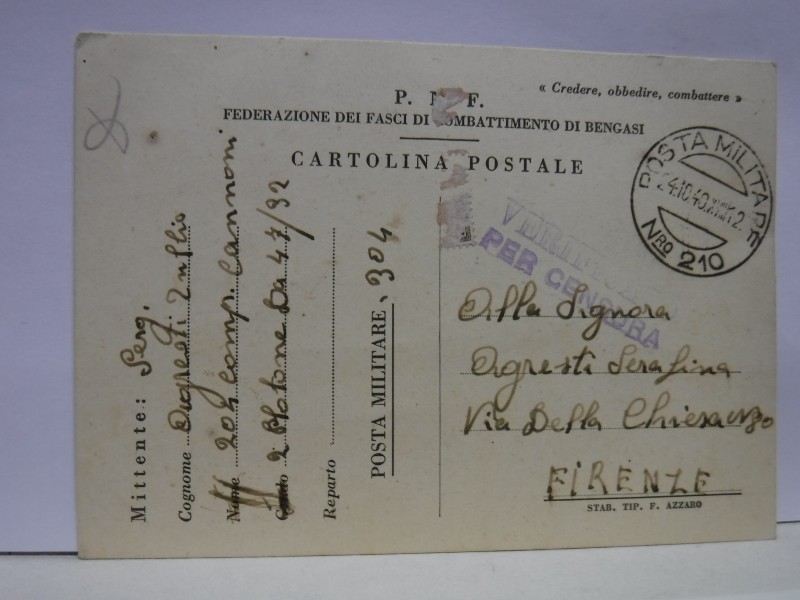 « Credere, obbedire, combattere »
P. N. F.
FEDERAZIONE DEI FASCI DI COMBATTIMENTO DI BENGASI
CARTOLINA POSTALE
POSTA MILITARE
24.10.40.
Nro 210
PER CENSURA
Mittente: Serg.
Cognome Agresti
Nome 204 Comp. Cannoni
Grado 2 Plotone Da 47/32
Reparto
POSTA MILITARE, 304
Alla Signora
Agresti Serafina
Via Della Chiesa
FIRENZE
STAB. TIP. F. AZZARO